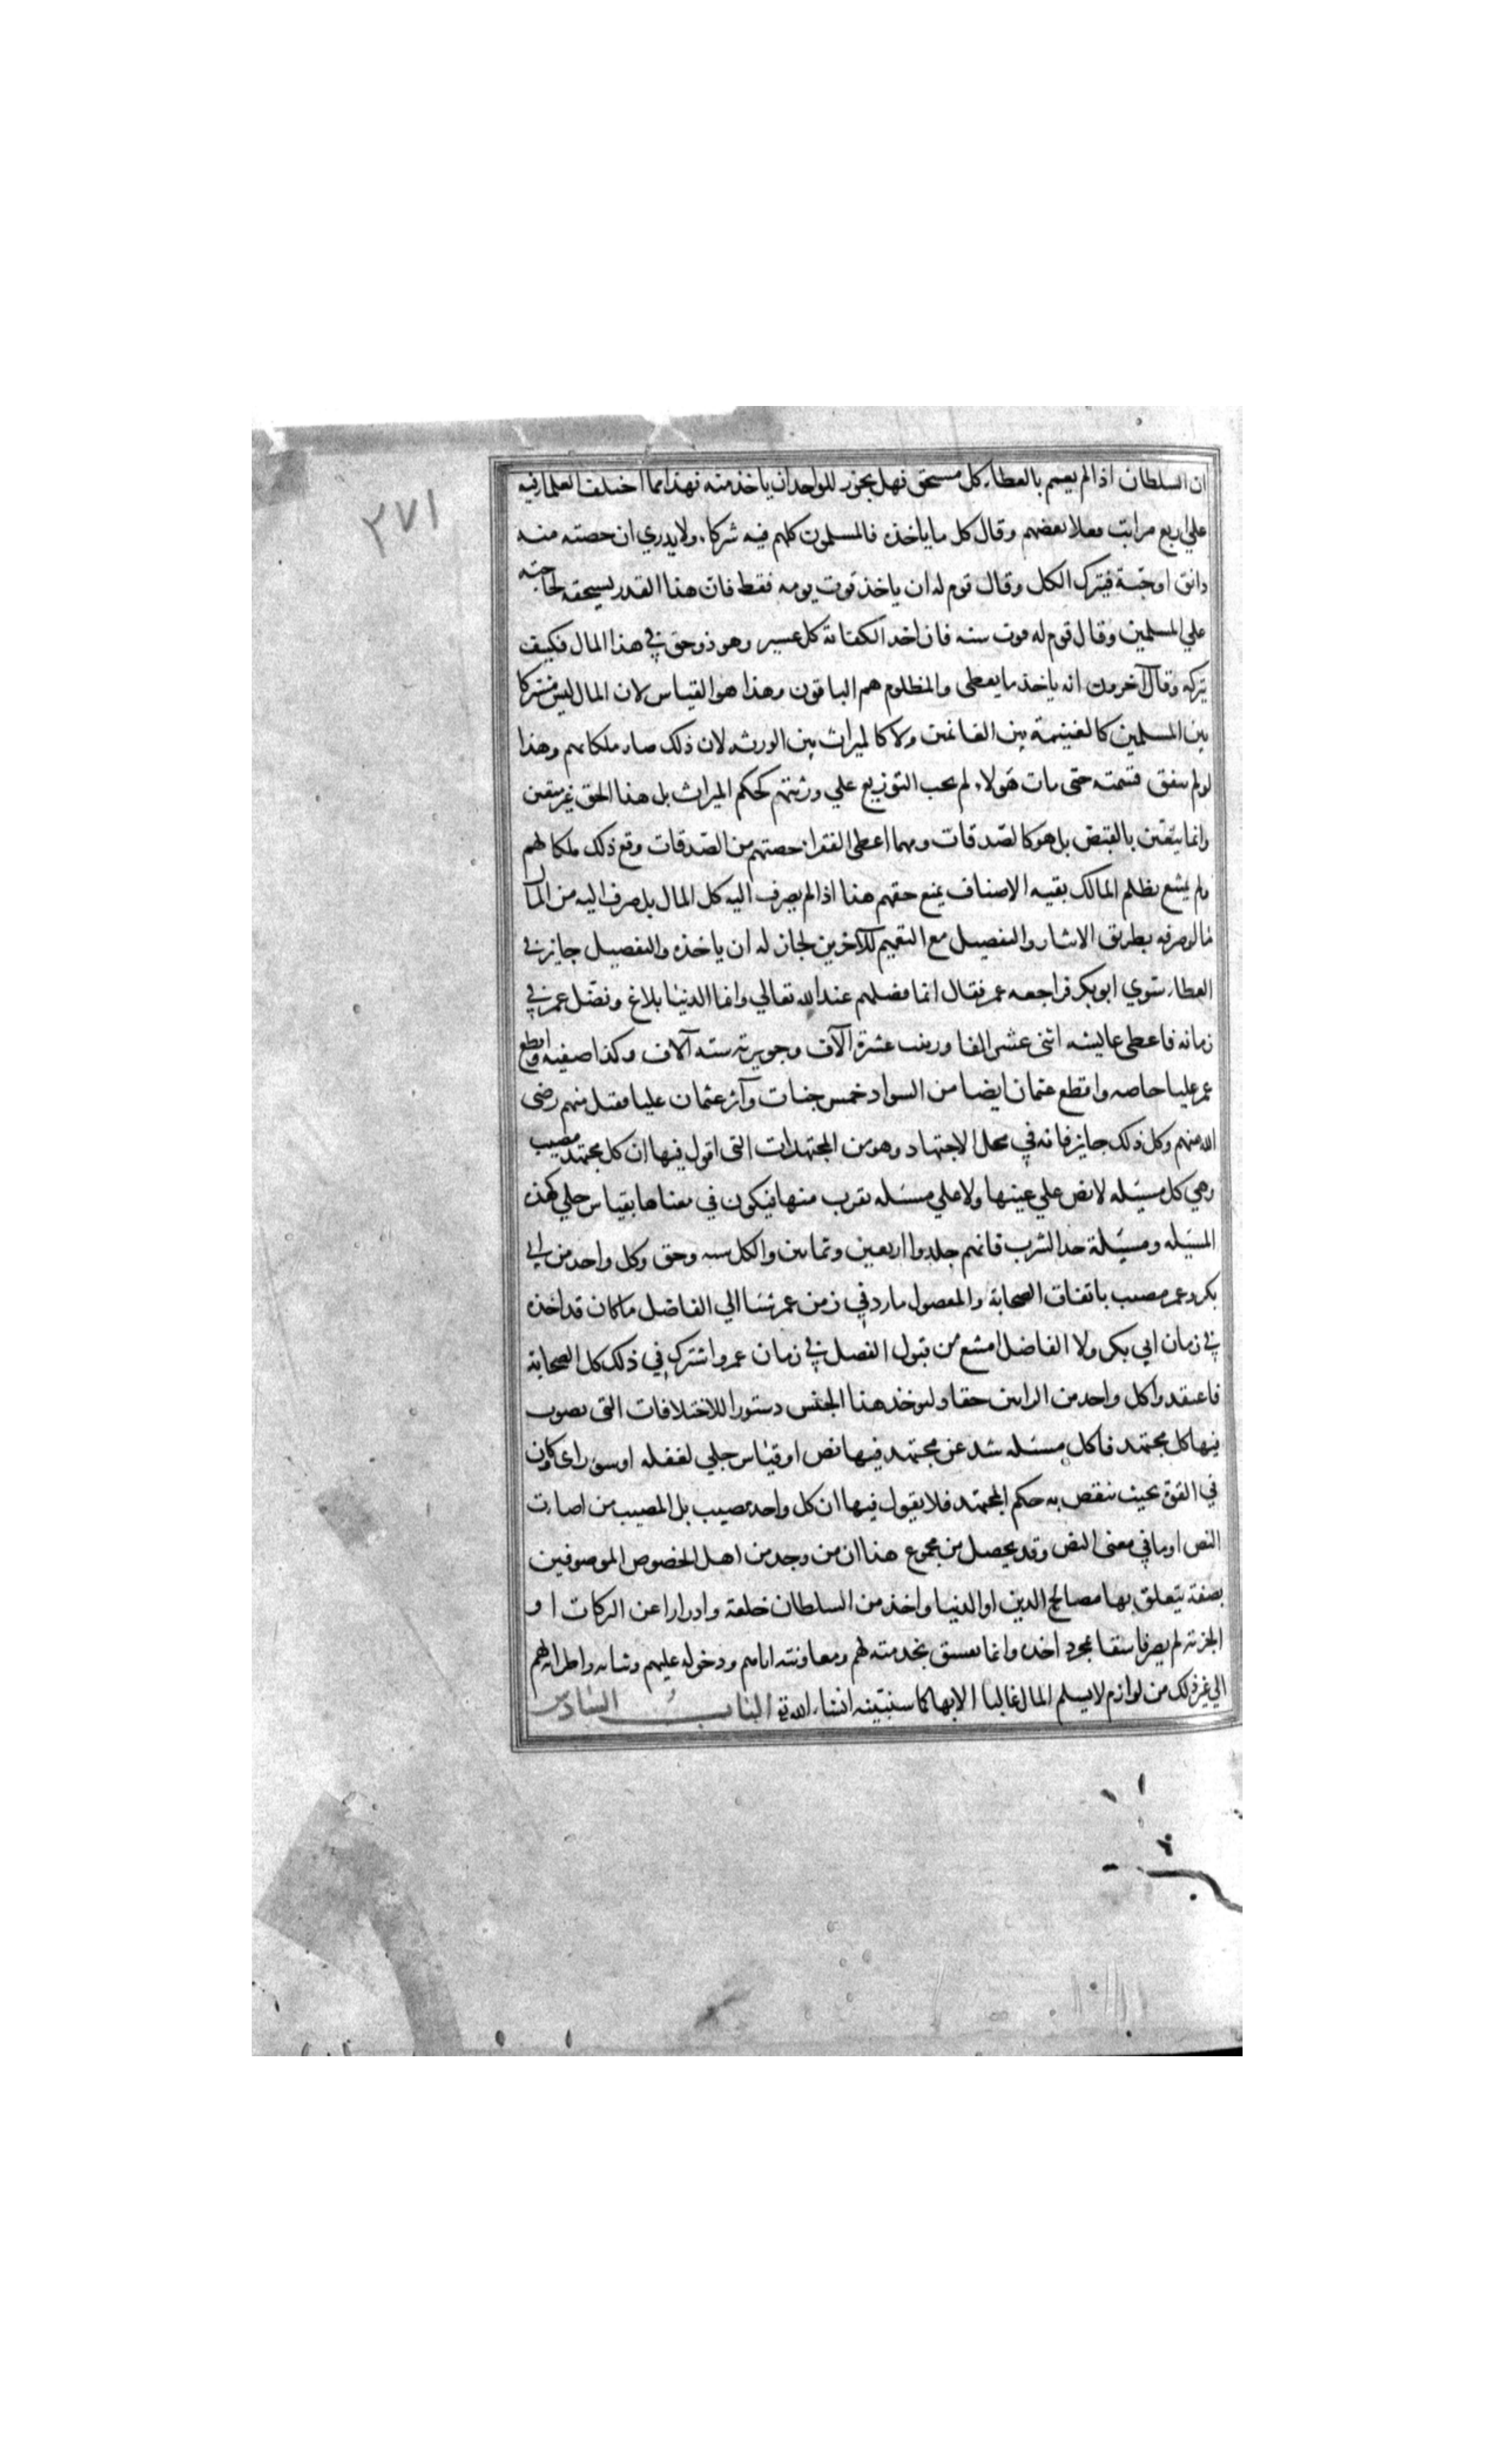 ٣٧١
ان السلطان اذا لم يعمم بالعطاء كل مستحق فهل يجوز للواحد ان ياخذ منه فهذا مما اختلف العلما فيه
علي اربع مراتب فعلا بعضهم وقال كل ما ياخذه فالمسلمون كلهم فيه شركاء ولا يدري ان حصته منه
دانق او حبة فيترك الكل وقال قوم له ان ياخذ قوت يومه فقط فان هذا القدر يستحقه لحاجته
علي المسلمين وقال قوم له قوت سنه فان اخذ الكفاية كل عسير وهو ذو حق في هذا المال فكيف
يتركه وقال آخرون انه ياخذ ما يعطى والمظلوم هم الباقون وهذا هو القياس لان المال ليس مشتركا
بين المسلمين كالغنيمة بين الغانمين ولا كالميراث بين الورثه لان ذلك صار ملكا لهم وهذا
لو لم يتفق قسمته حتى مات هولاء لم يجب التوزيع علي ورثتهم كحكم الميراث بل هذا الحق غير متعين
وانما يتعين بالقبض بل هو كالصدقات ومهما اعطى الفقرا حصتهم من الصدقات وقع ذلك ملكا لهم
ولم يمتنع بظلم المالك بقيه الاصناف يمنع حقهم هذا اذا لم يصرف اليه كل المال بل صرف اليه من المال
ما لو صرفه بطريق الايثار والتفضيل مع التعميم للآخرين لجاز له ان ياخذه والتفضيل جايز في
العطاء سوي ابو بكر فراجعه عمر فقال انما فضلهم عند الله تعالي وانما الدنيا بلاغ وفضل عمر في
زمانه فاعطى عايشه اثنى عشر الفا وزينب عشرة آلاف وجويرية سته آلاف وكذا صفيه واقطع
عمر عليا خاصه واقطع عثمان ايضا من السواد خمس جنات وآثر عثمان عليا فقبل منهم رضي
الله منهم وكل ذلك جايز فانه في محل الاجتهاد وهو من المجتهدات التى اقول فيها ان كل مجتهد مصيب
وهي كل مسيله لا نص علي عينها ولا علي مسيله تقرب منها فيكون في معناها بقياس جلي كهذه
المسيله ومسيلة حد الشرب فانهم جلدوا اربعين وثمانين والكل سنه وحق وكل واحد من ابي
بكر وعمر مصيب باتفاق الصحابة والمفضول ما رد في زمن عمر شيا الي الفاضل ما كان قد اخذه
في زمان ابي بكر ولا الفاضل امتنع من قبول الفضل في زمان عمر واشترك في ذلك كل الصحابة
فاعتقدوا كل واحد من الرايين حقا وليوخذ هذا الجنس دستورا للاختلافات التى يصوب
فيها كل مجتهد فاما كل مسئله شذ عن مجتهد فيها نص او قياس جلي لغفله او سوء راى وكان
في القوة بحيث ينقض به حكم المجتهد فلا يقول فيها ان كل واحد مصيب بل المصيب من اصاب
النص او ما في معنى النص وقد يحصل من مجموع هذا ان من وجد من اهل الخصوص الموصوفين
بصفة يتعلق بها مصالح الدين او الدنيا واخذ من السلطان خلعة وادرارا عن التركات او
الجزية لم يصر فاسقا بمجرد اخذه وانما يفسق بخدمته لهم ومعاونته اياهم ودخوله عليهم وثنايه واطرايه لهم
الي غير ذلك من لوازم لا يسلم المال غالبا الا بها كما سنبينه انشاء الله تع الباب السادس